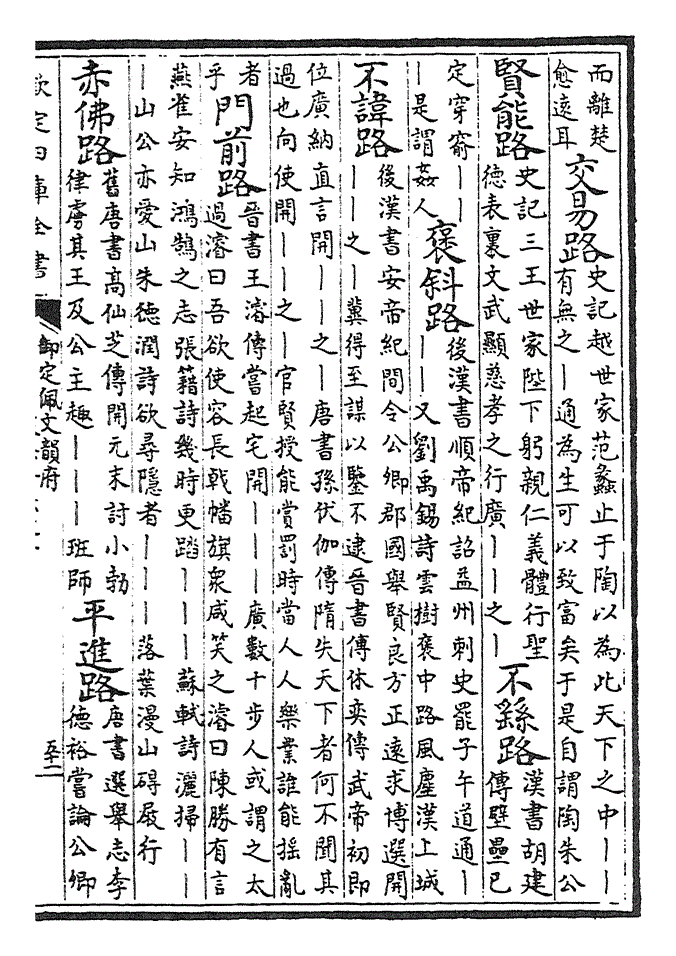 而離楚
愈遠耳
交易路
史記越世家范蠡止于陶以為此天下之中丨丨
有無之丨通為生可以致富矣于是自謂陶朱公
賢能路
史記三王世家陛下躬親仁義體行聖
德表裏文武顯慈孝之行廣丨丨之丨
不繇路
漢書胡建
傳壁壘已
定穿窬丨丨
丨是謂姦人
褒斜路
後漢書順帝紀詔益州刺史罷子午道通丨
丨丨又劉禹錫詩雲樹褒中路風塵漢上城
不諱路
後漢書安帝紀間令公卿郡國舉賢良方正遠求博選開
丨丨之丨冀得至謀以鑒不逮晉書傅休奕傳武帝初即
位廣納直言開丨丨丨之丨唐書孫伏伽傳隋失天下者何不聞其
過也向使開丨丨之丨官賢授能賞罰時當人人樂業誰能摇亂
者
乎
門前路
晉書王濬傳嘗起宅開丨丨丨廣數十步人或謂之太
過濬曰吾欲使容長戟幡旗衆咸笑之濬曰陳勝有言
燕雀安知鴻鵠之志張籍詩幾時更踏丨丨丨蘇軾詩灑掃丨丨
丨山公亦愛山朱德潤詩欲尋隱者丨丨丨落葉漫山礙屐行
赤佛路
舊唐書高仙芝傳開元末討小勃
律虜其王及公主趣丨丨丨班師
平進路
唐書選舉志李
德裕嘗論公卿
欽定四庫全書
御定佩文韻府
五十二